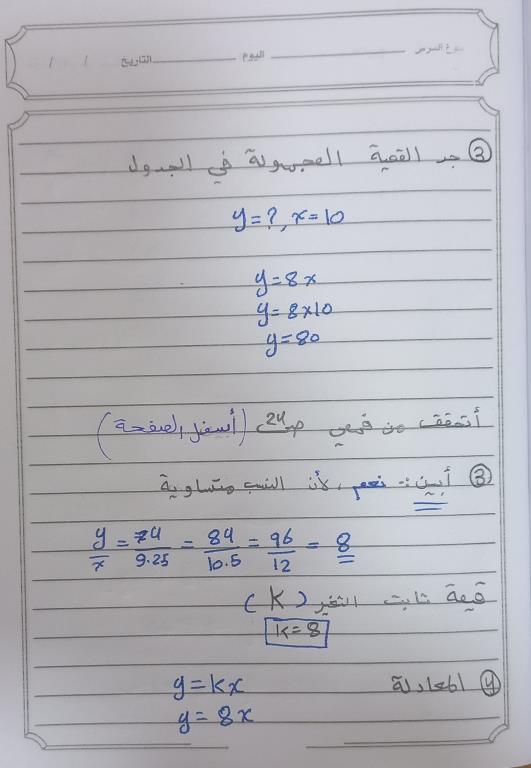 اليوم التاريخ / /
③ جد القيمة المجهولة في الجدول
y=?, x=10
y=8x
y=8×10
y=80
أتحقق من فهمي صـ24 (أسفل الصفحة)
③ أبين:- نعم، لأن النسب متساوية
y/x = 74/9.25 = 84/10.5 = 96/12 = 8
قيمة ثابت التغير (K)
k=8
④ المعادلة
y=kx
y=8x